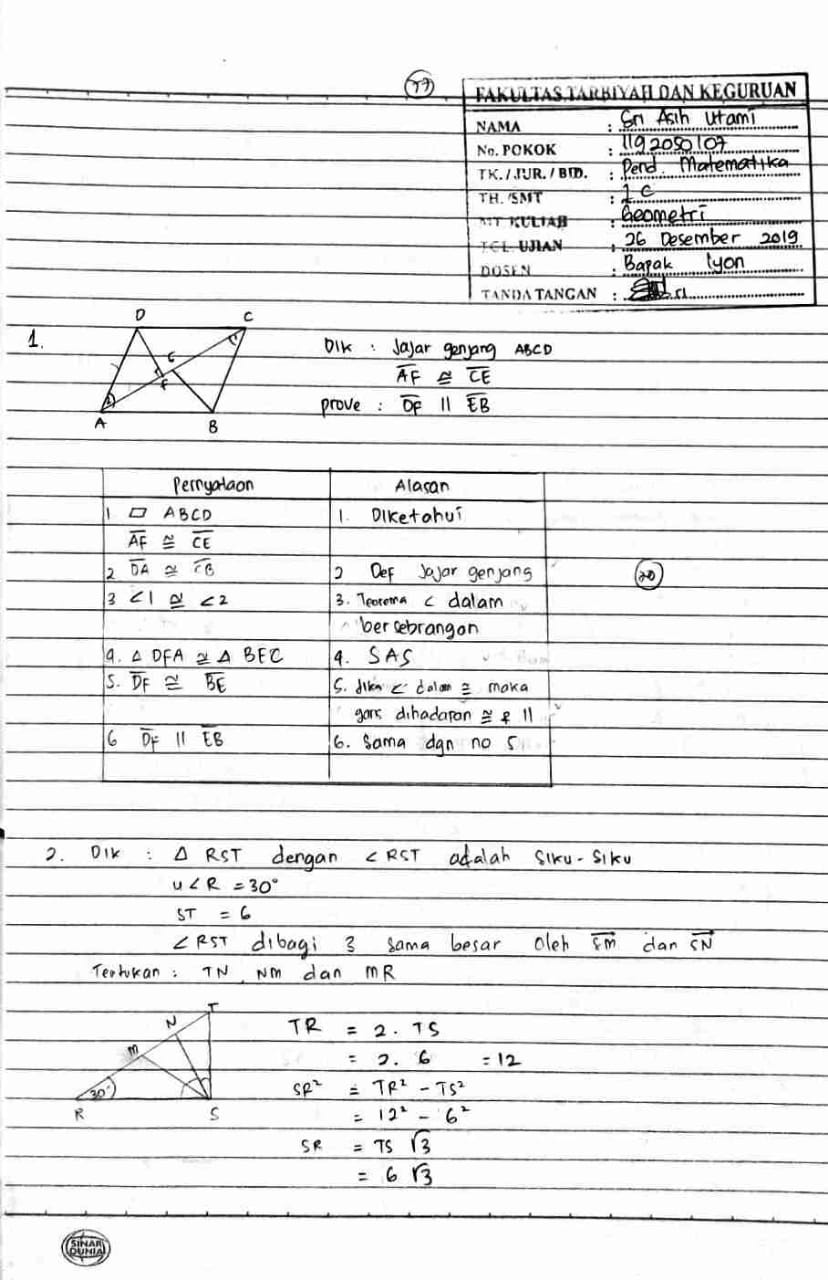 77
FAKULTAS TARBIYAH DAN KEGURUAN
NAMA : Sri Asih Utami
No. POKOK : 1192050107
TK. / JUR. / BID. : Pend. Matematika
TH. /SMT : 1 C
MT KULIAH : Geometri
TGL. UJIAN : 26 Desember 2019
DOSEN : Bapak Iyon
TANDA TANGAN :
1.
D C
E
F
A B
Dik : Jajar genjang ABCD
AF ≅ CE
prove : DF || EB
Pernyataan Alasan
1 ▱ ABCD 1. Diketahui
AF ≅ CE
2 DA ≅ CB 2 Def Jajar genjang
3 <1 ≅ <2 3. Teorema < dalam
bersebrangan
4. Δ DFA ≅ Δ BEC 4. SAS
5. DF ≅ BE 5. Jika < dalam ≅ maka
garis dihadapan ≅ & ||
6 DF || EB 6. Sama dgn no 5
20
2. Dik : Δ RST dengan < RST adalah siku-siku
u<R = 30°
ST = 6
<RST dibagi 3 sama besar oleh SM dan SN
Tentukan : TN, NM dan MR
T
N
M
30°
R S
TR = 2. TS
= 2. 6 = 12
SR² = TR² - TS²
= 12² - 6²
SR = TS √3
= 6 √3
SINAR
DUNIA